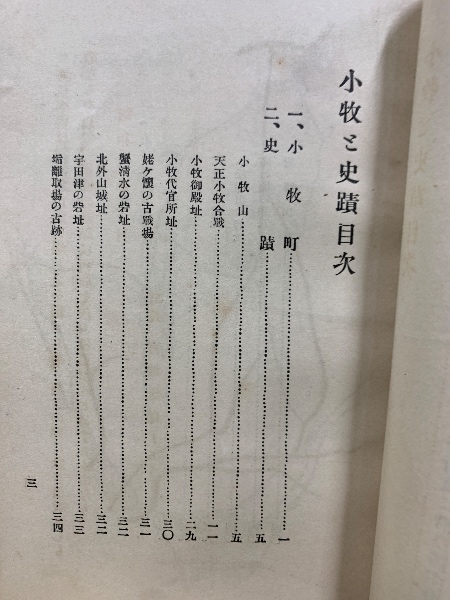 小牧と史蹟目次
一、小牧町……………………一
二、史蹟……………………五
小牧山……………………五
天正小牧合戰……………………一一
小牧御殿址……………………二九
小牧代官所址……………………三〇
姥ケ懷の古戰場……………………三一
蟹清水の砦址……………………三二
北外山城址……………………三二
宇田津の砦址……………………三三
場離取場の古跡……………………三四
三